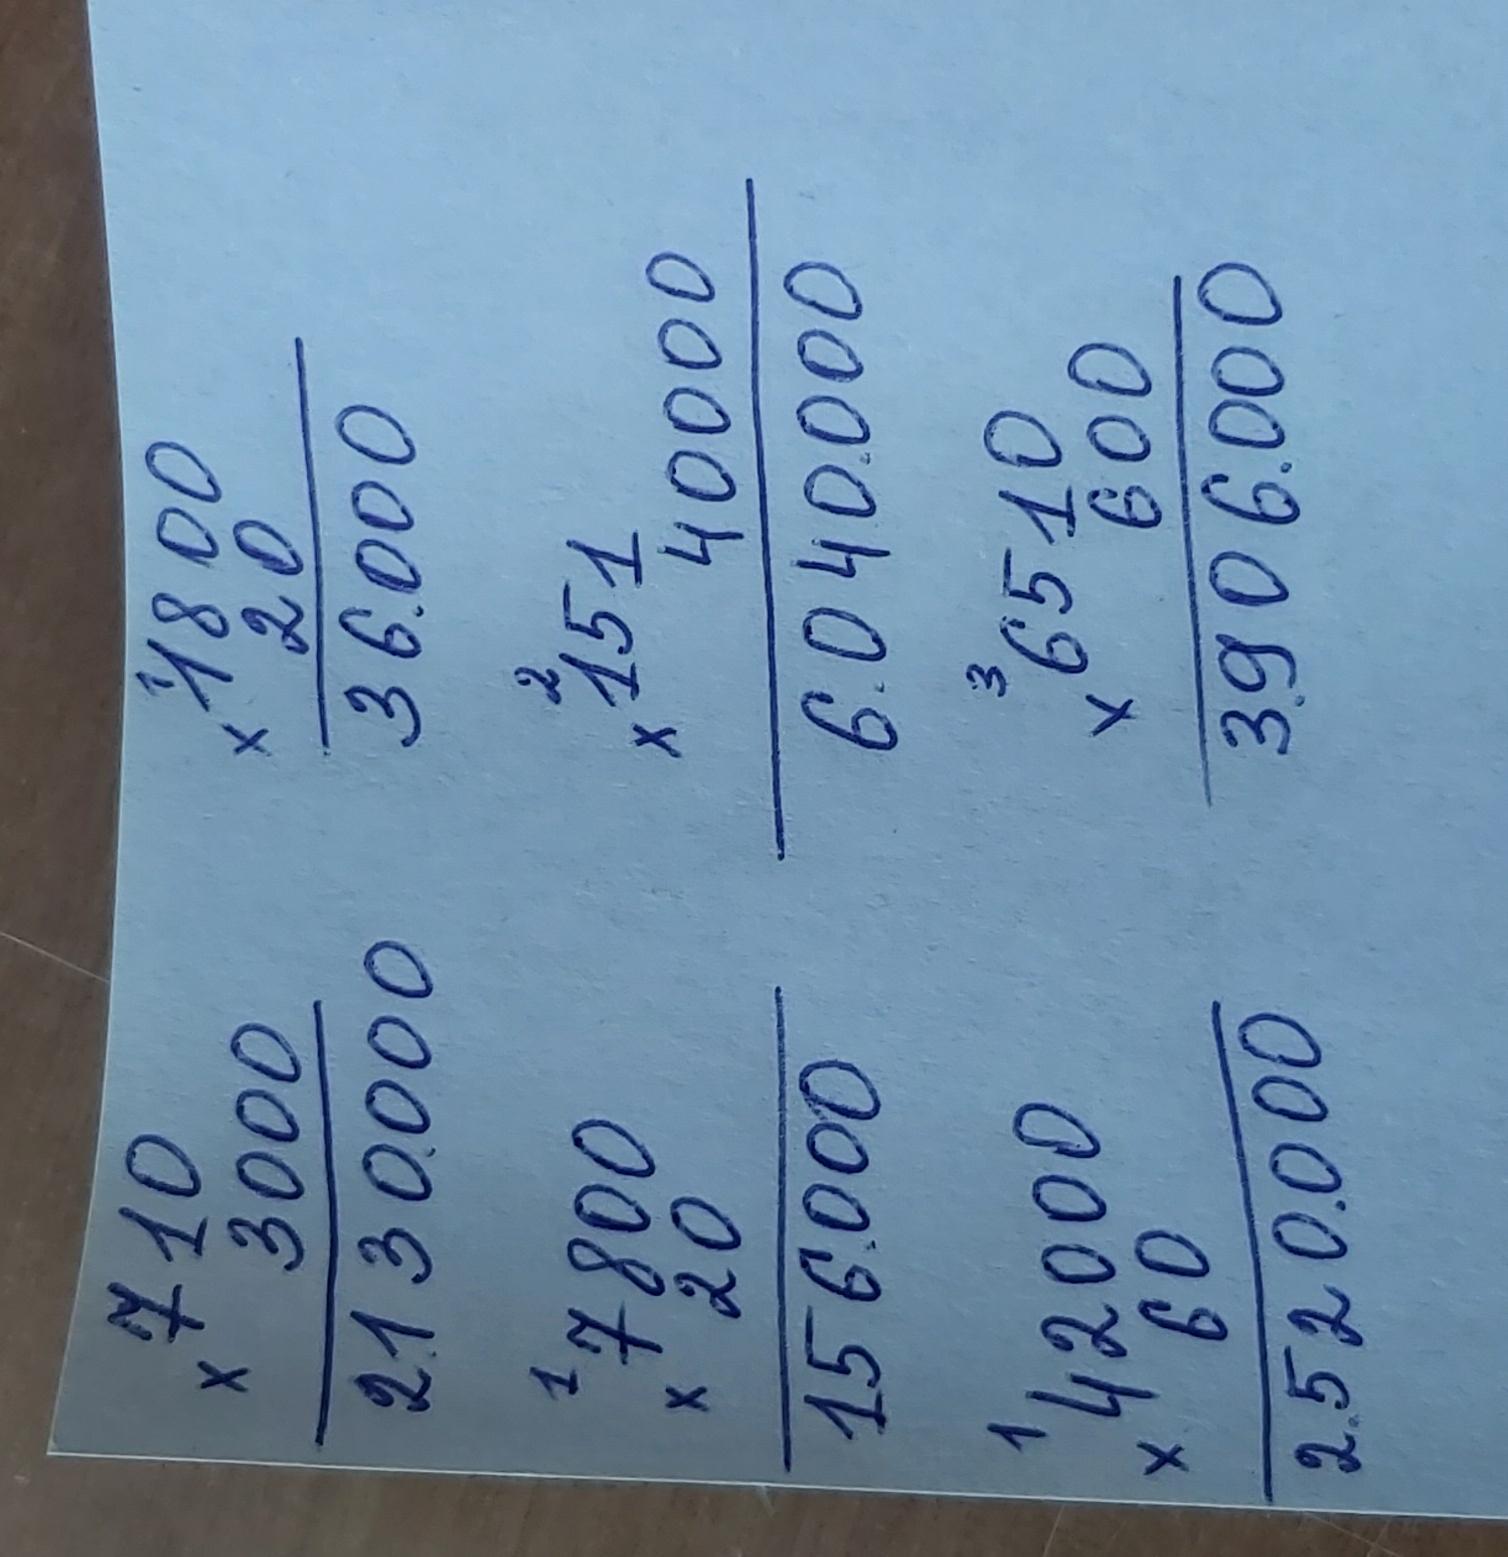 710
x 3000
2.130.000
1
x 1800
20
36.000
1
7800
x 20
156.000
2
x 151
40000
6.040.000
1
42000
x 60
2.520.000
3
x 6510
600
3.906.000